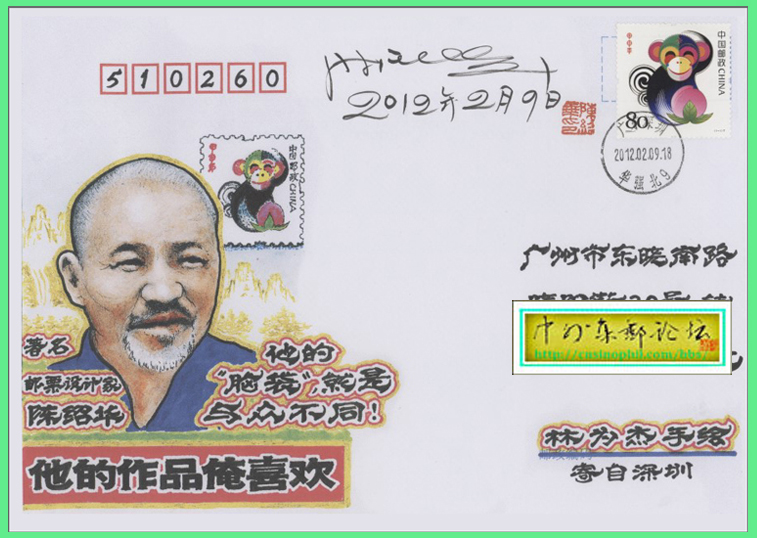 510260
2012年2月9日
甲申年
中国邮政CHINA
80
广东深圳
2012.02.09.18
华强北9
甲申年
中国邮政CHINA
广州市东晓南路
中外集邮论坛
http://cnsinophil.com/bbs/
著名
邮票设计家
陈绍华
他的
“脑袋”,就是
与众不同!
他的作品俺喜欢
林为杰手绘
寄自深圳